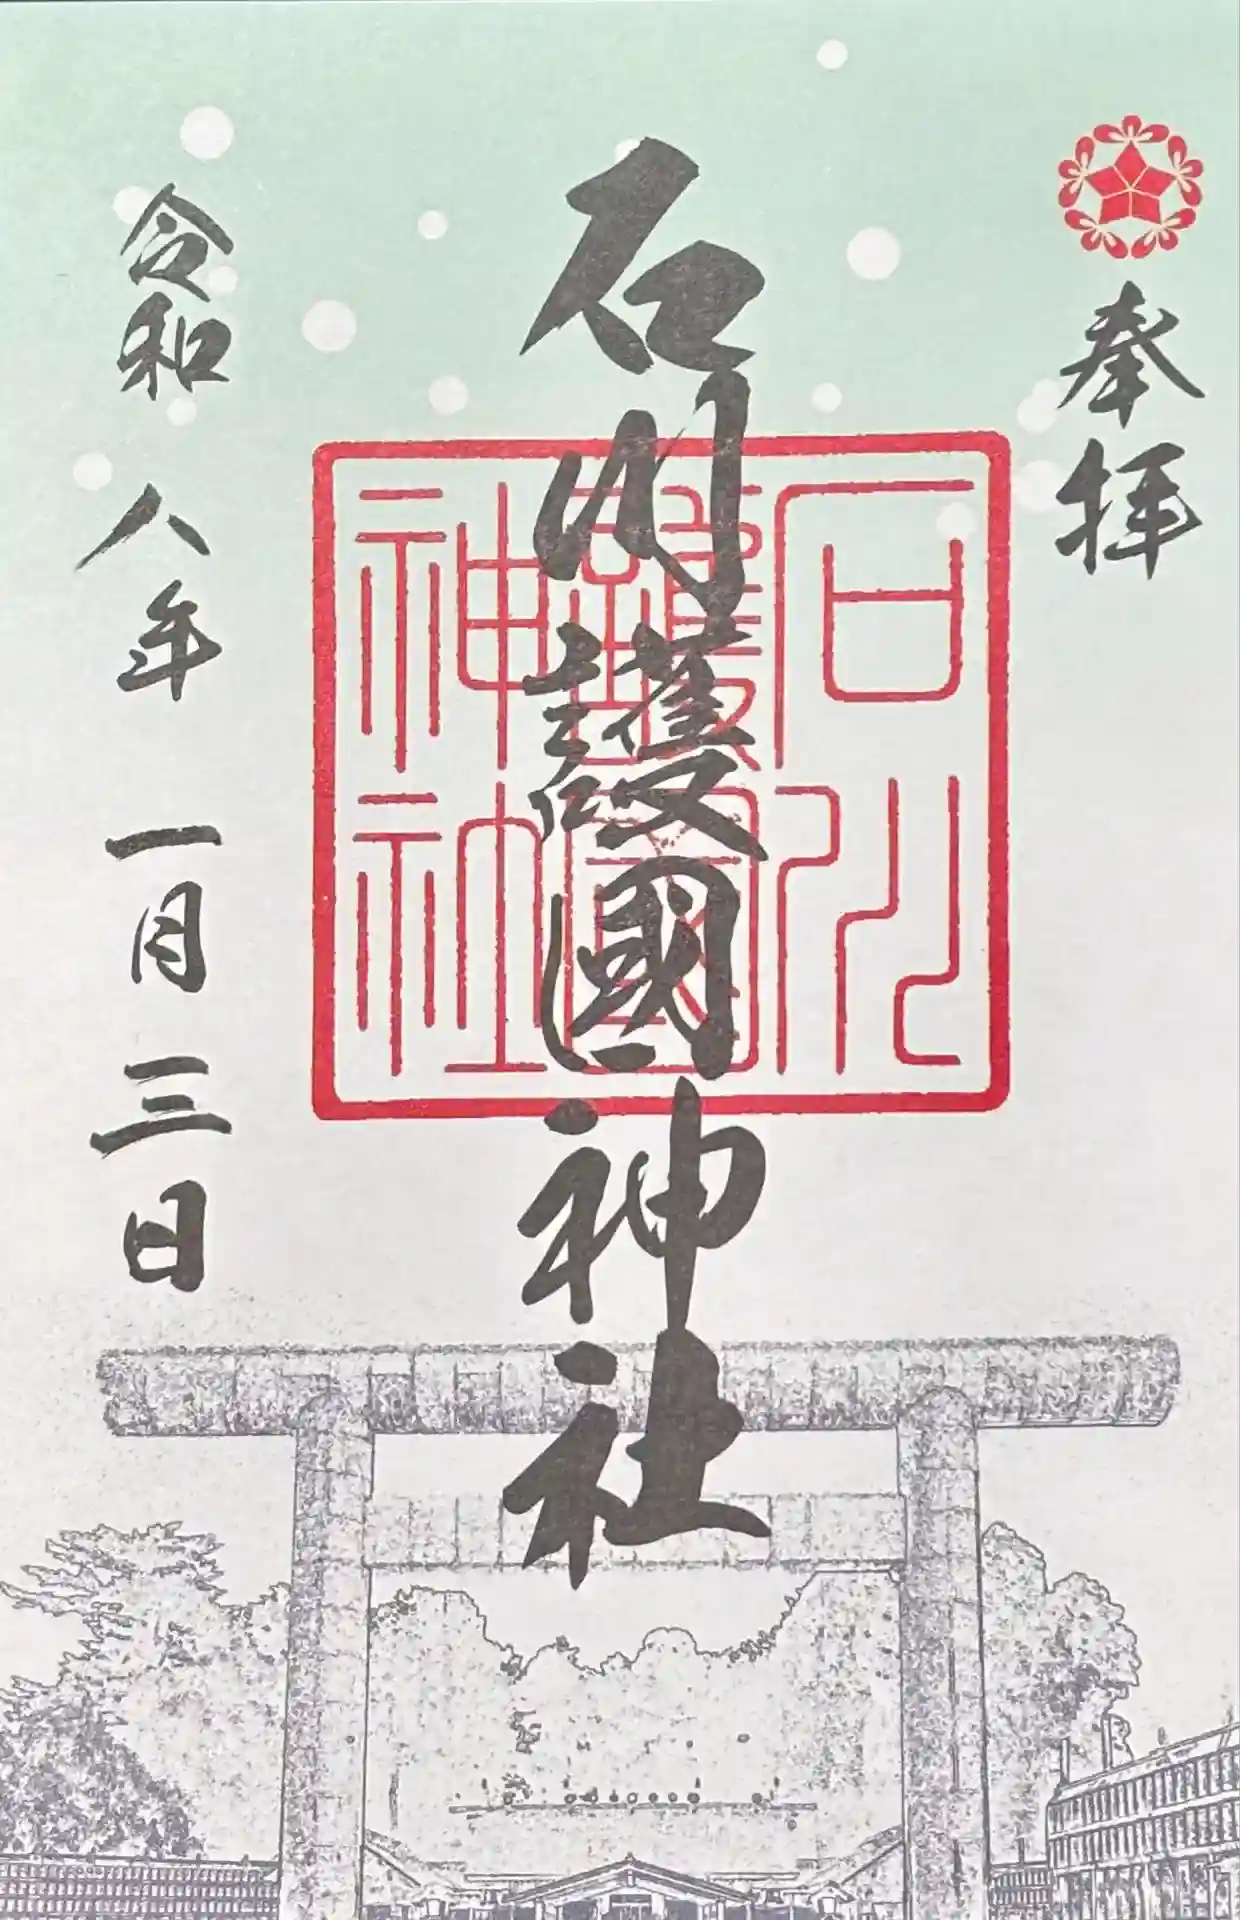 奉拝
石川護國神社
石川
護國
神社
令和八年一月三日